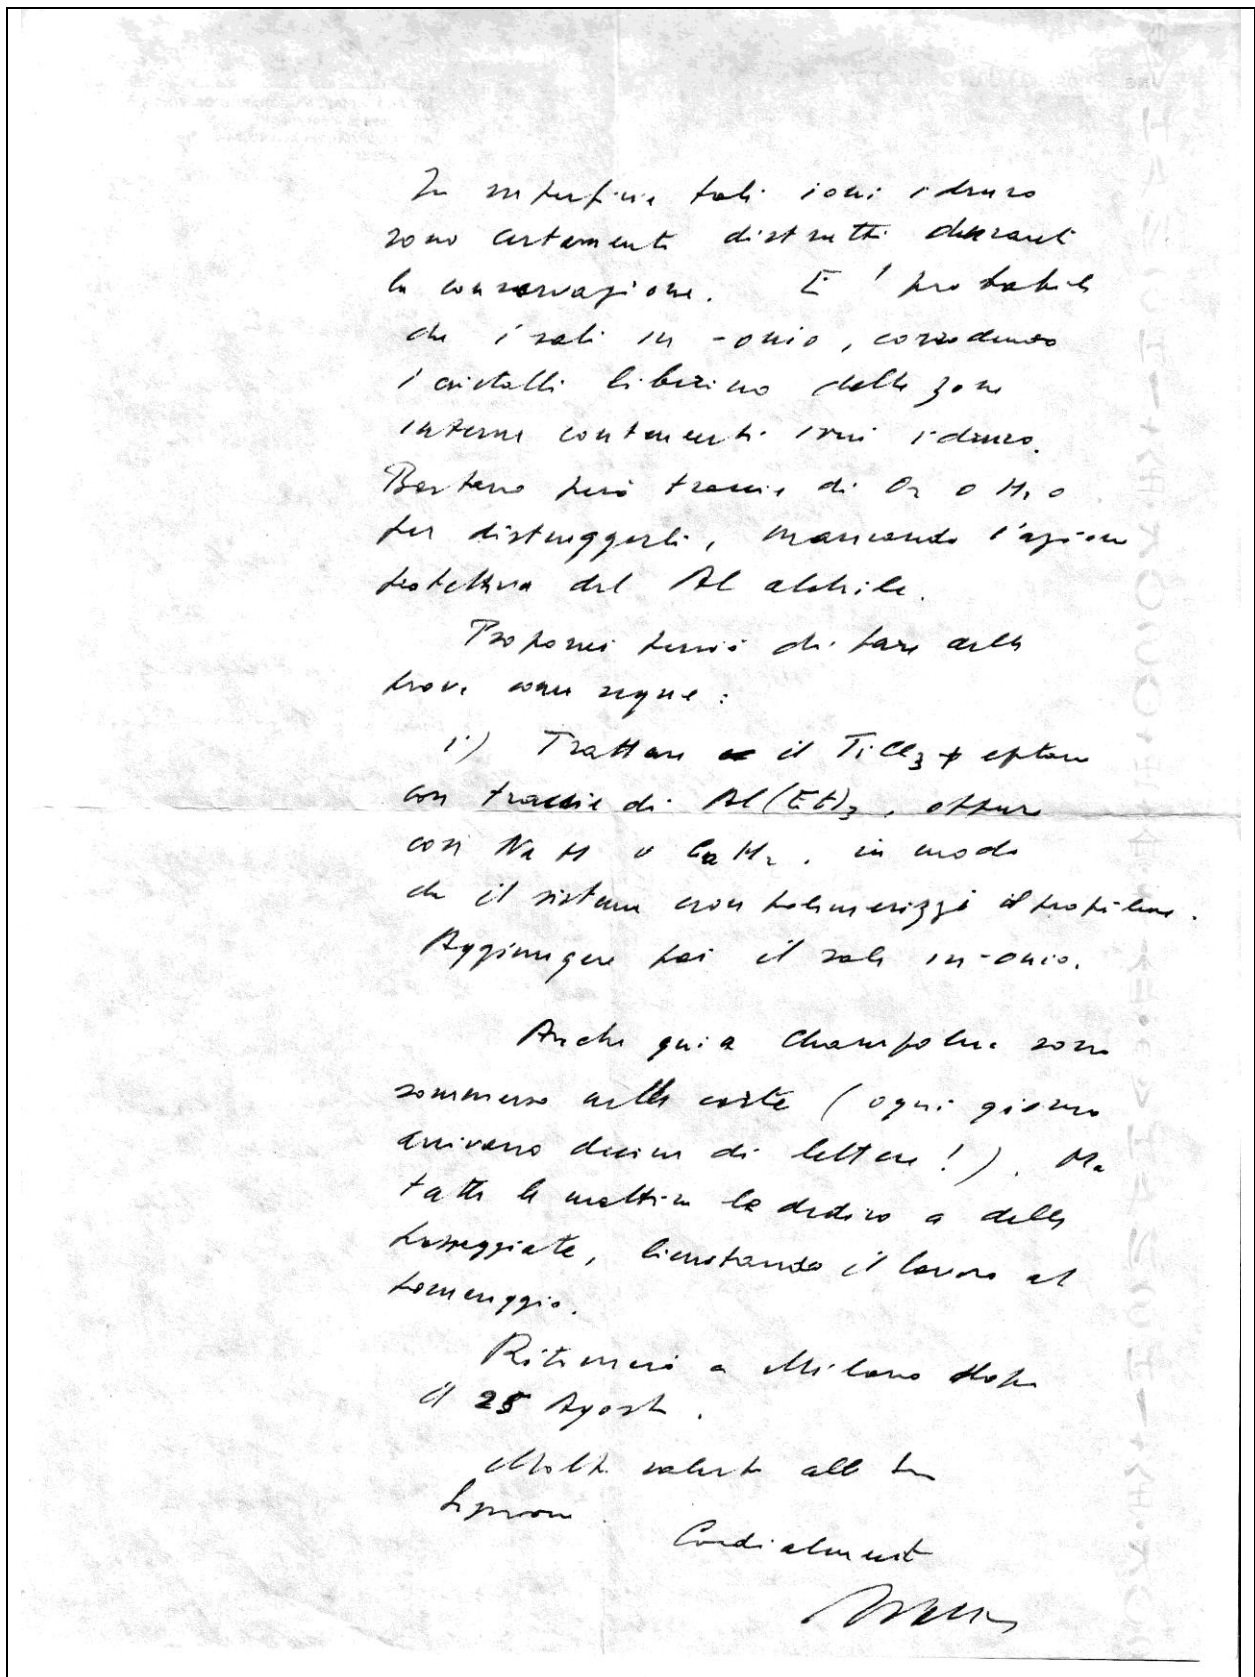 In superficie tali ioni idruro
sono certamente distrutti durante
la conservazione. E' probabile
che i sali in -onio, corrodendo
i cristalli liberino delle zone
interne contenenti ioni idruro.
Bastano però traccie di O2 o H2O
per distruggerli, mancando l'azione
protettiva del Al alchile.
Proporrei perciò di fare delle
prove come segue:
1) Trattare il TiCl3 + eptano
con traccie di Al(Et)3, oppure
con NaH o CaH2, in modo
che il sistema non polimerizzi il propilene.
Aggiungere poi il sale in -onio.
Anche qui a Champoluc sono
sommerso nelle carte (ogni giorno
arrivano decine di lettere!). Ma
tutte le mattine le dedico a delle
passeggiate, limitando il lavoro al
pomeriggio.
Ritornerò a Milano dopo
il 25 Agosto.
Molti saluti alla sua
Signora.
Cordialmente